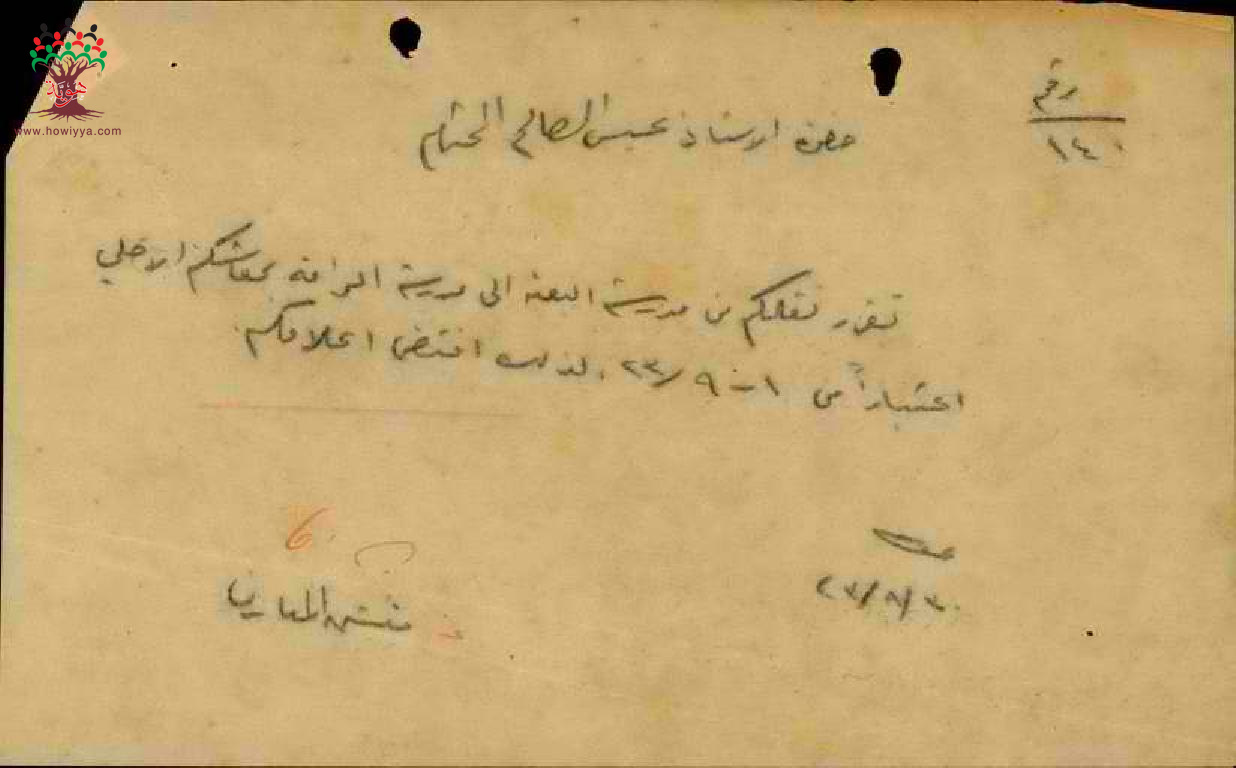 هوية
www.howiyya.com
رقم
١٤٠
حضرة الاستاذ عبس الصالح المحترم
تقرر نقلكم من مدرسة البعنه الى مدرسة الرامه بمعاشكم الاصلي
اعتباراً من ١-٩/٢٣. لذلك اقتضى اعلامكم.
عكا
٣٠/٨/٢٣
مفتش المعارف